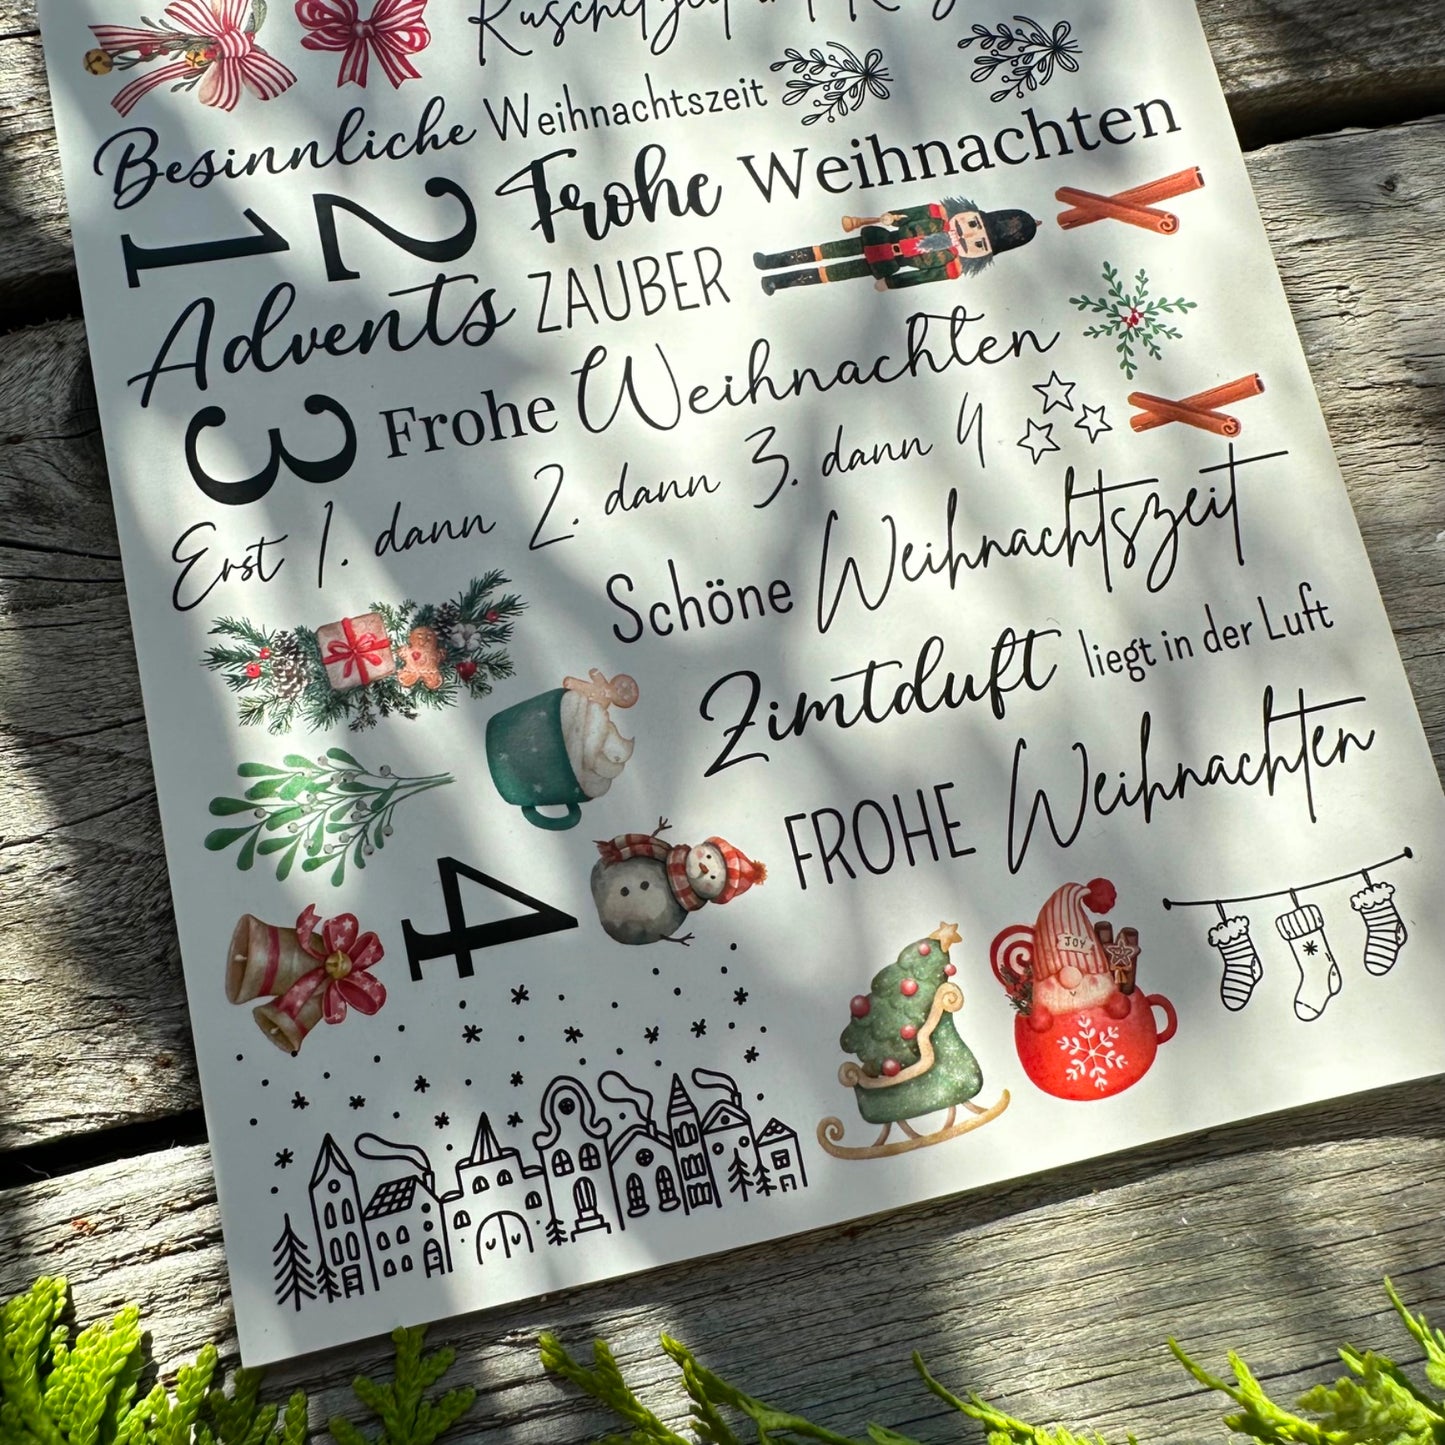 Besinnliche Weihnachtszeit
1 2
Frohe Weihnachten
Advents ZAUBER
3
Frohe Weihnachten
Erst 1. dann 2. dann 3. dann 4
Schöne Weihnachtszeit
Zimtduft liegt in der Luft
FROHE Weihnachten
4
JOY